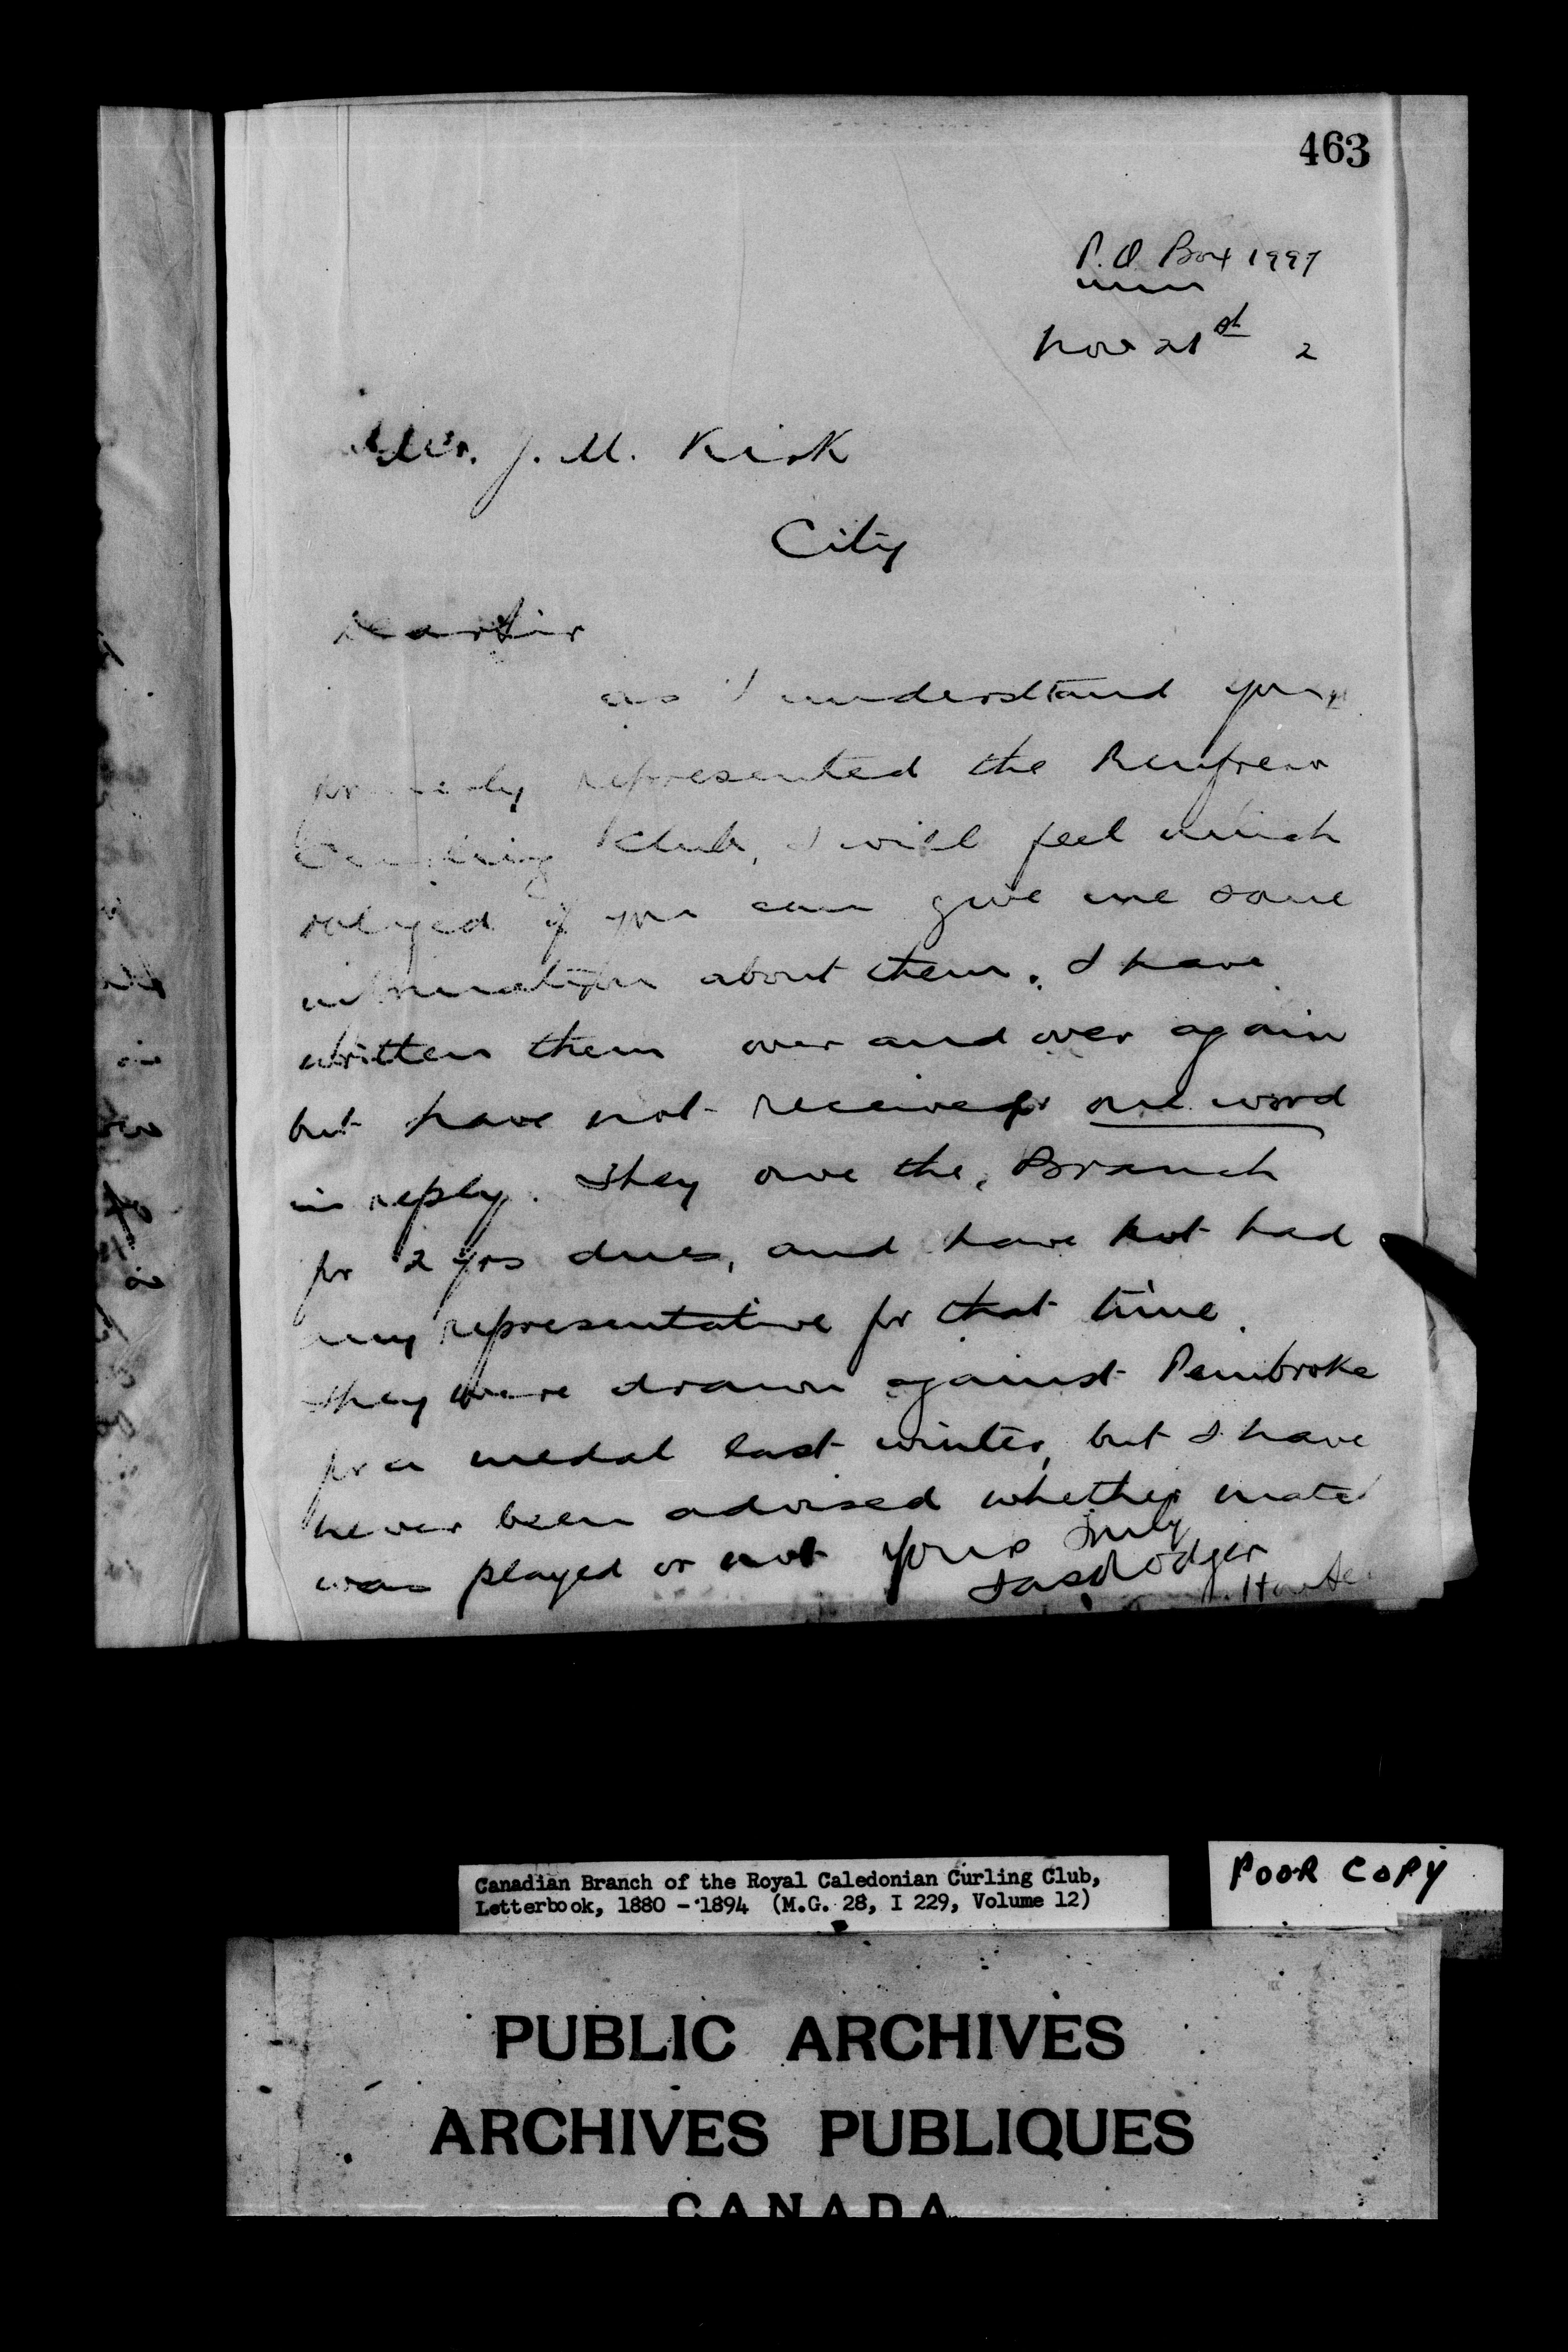 463
P.O. Box 1997
Nov 21st 2
Mr. J. M. Kirk
City
Dear Sir
as I understand you
formerly represented the Renfrew
Curling Club, I will feel much
obliged if you can give me some
information about them. I have
written them over and over again
but have not received one word
in reply. They owe the Branch
for 2 yrs dues, and have not had
any representative for that time.
They were drawn against Pembroke
for a medal last winter, but I have
never been advised whether match
was played or not Yours truly
Jas Rodger
Canadian Branch of the Royal Caledonian Curling Club,
Letterbook, 1880 - 1894 (M.G. 28, I 229, Volume 12)
POOR COPY
PUBLIC ARCHIVES
ARCHIVES PUBLIQUES
CANADA